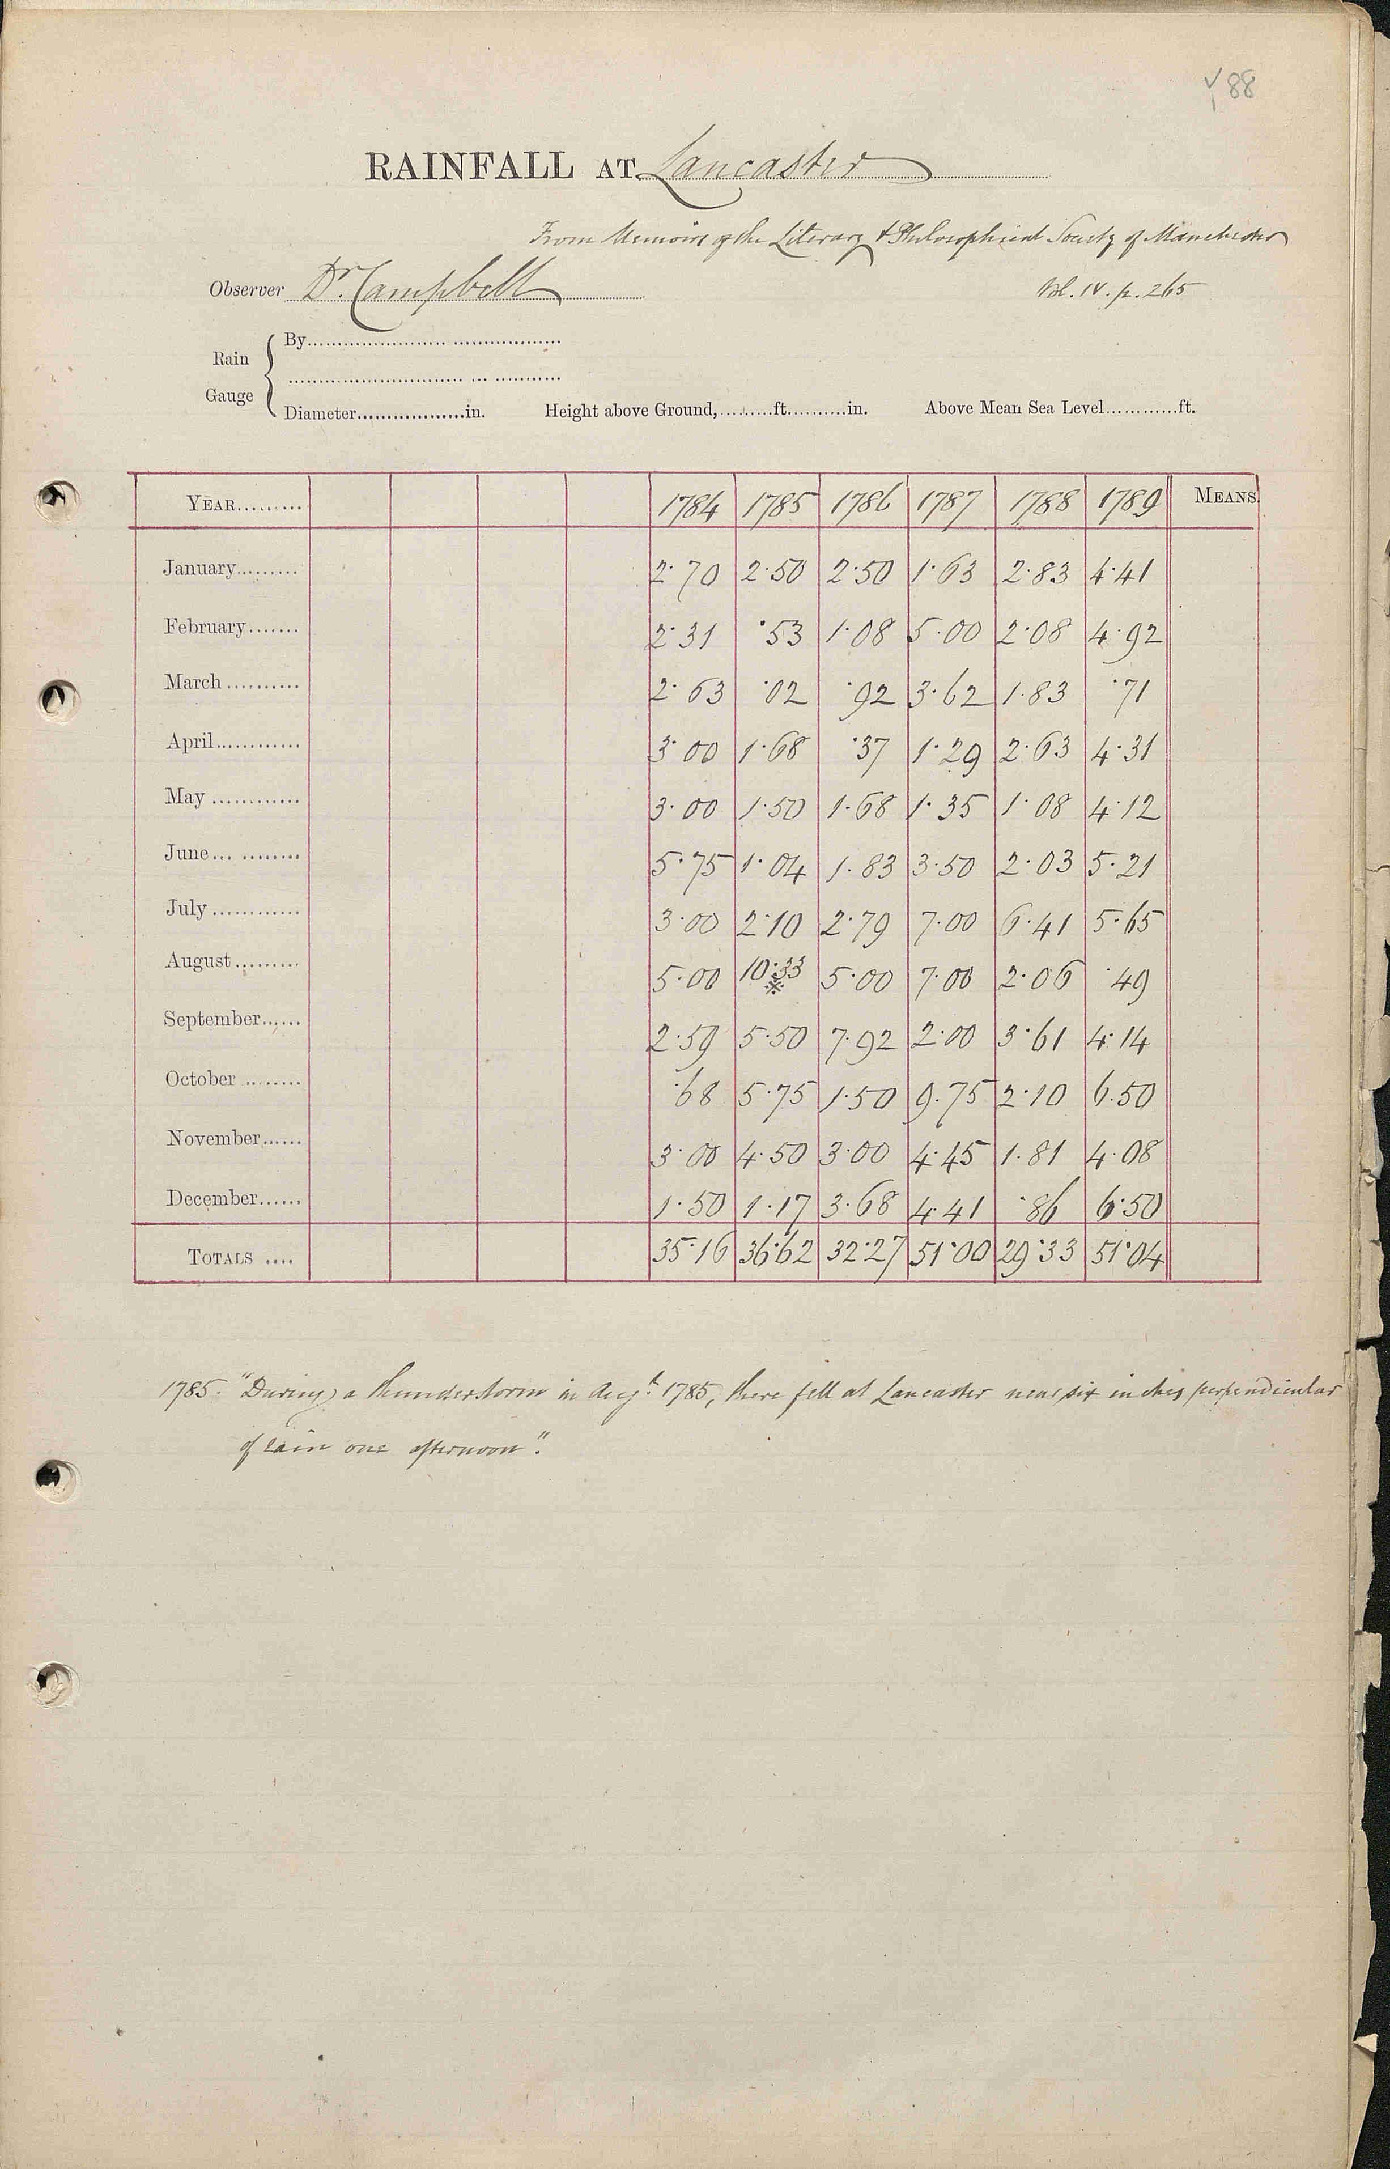 √ 88
RAINFALL AT Lancaster
From Memoirs of the Literary & Philosophical Society of Manchester
Observer Dr. Campbell Vol. IV. p. 265
By
Rain
Gauge
Diameter in. Height above Ground, ft. in. Above Mean Sea Level ft.
YEAR 1784 1785 1786 1787 1788 1789 MEANS.
January 2·70 2·50 2·50 1·63 2·83 4·41
February 2·31 ·53 1·08 5·00 2·08 4·92
March 2·63 ·02 ·92 3·62 1·83 ·71
April 3·00 1·68 ·37 1·29 2·63 4·31
May 3·00 1·50 1·68 1·35 1·08 4·12
June 5·75 1·04 1·83 3·50 2·03 5·21
July 3·00 2·10 2·79 7·00 6·41 5·65
August 5·00 10·33 ※ 5·00 7·00 2·06 ·49
September 2·59 5·50 7·92 2·00 3·61 4·14
October ·68 5·75 1·50 9·75 2·10 6·50
November 3·00 4·50 3·00 4·45 1·81 4·08
December 1·50 1·17 3·68 4·41 ·86 6·50
TOTALS 35·16 36·62 32·27 51·00 29·33 51·04
1785. "During a thunderstorm in Augt. 1785, there fell at Lancaster near six inches perpendicular
of rain one afternoon".